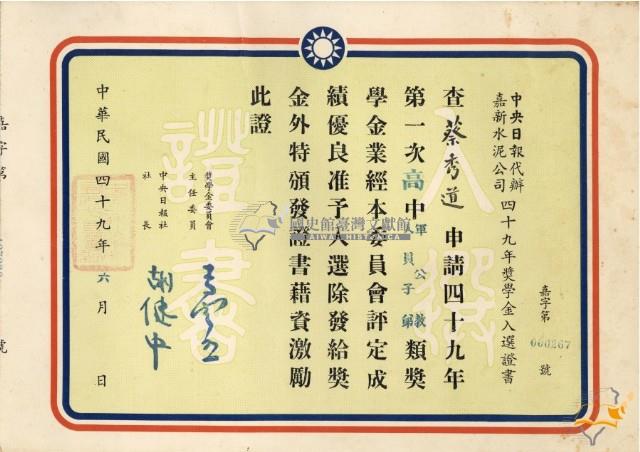 中央日報代辦
嘉新水泥公司
四十九年獎學金入選證書
嘉字第
000267
號
查蔡秀道申請四十九年
第一次高中軍公教人員子弟類獎
學金業經本委員會評定成
績優良准予入選除發給獎
金外特頒發證書藉資激勵
此證
獎學金委員會
主任委員
中央日報社
社長
胡健中
中華民國四十九年六月 日
入選
證書
國史館臺灣文獻館
TAIWAN HISTORICA
嘉字第
號